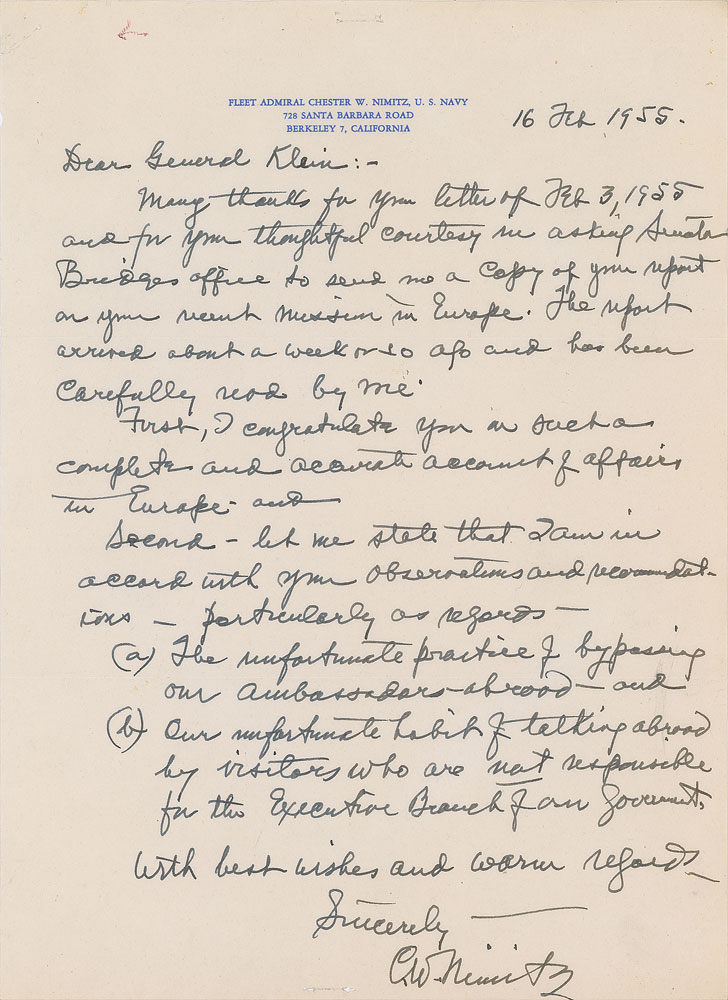 FLEET ADMIRAL CHESTER W. NIMITZ, U. S. NAVY
728 SANTA BARBARA ROAD
BERKELEY 7, CALIFORNIA
16 Feb 1955.
Dear General Klein:-
Many thanks for your letter of Feb 3, 1955
and for your thoughtful courtesy in asking Senator
Bridges office to send me a copy of your report
on your recent mission in Europe. The report
arrived about a week or so ago and has been
carefully read by me.
First, I congratulate you on such a
complete and accurate account of affairs
in Europe - and
Second - let me state that I am in
accord with your observations and recommendat-
ions — particularly as regards —
(a) The unfortunate practice of bypassing
our Ambassadors abroad - and
(b) Our unfortunate habit of talking abroad
by visitors who are not responsible
for the Executive Branch of our Government.
With best wishes and warm regards
Sincerely
C.W. Nimitz